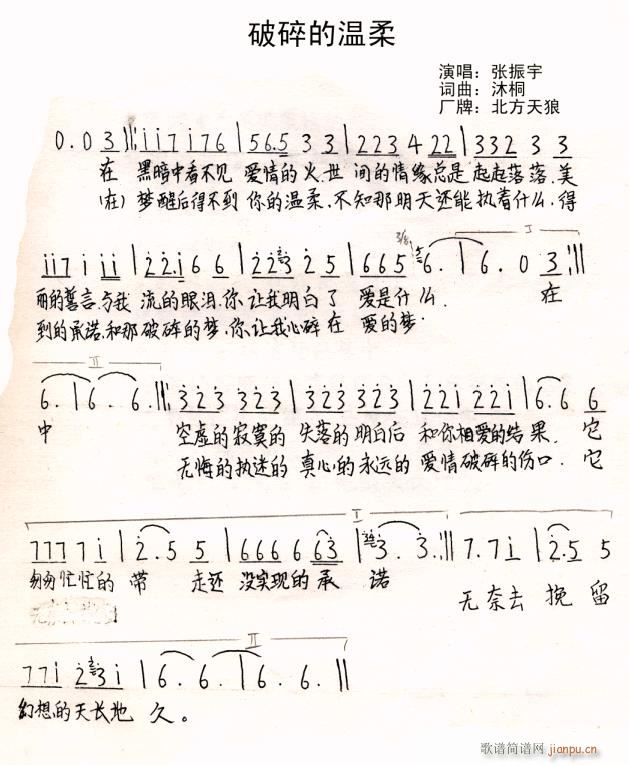 破碎的温柔
演唱：张振宇
词曲：沐桐
厂牌：北方天狼
0.03‖:ii7i76|56.533|223422|33233
在 黑暗中看不见 爱情的火.世 间的情缘总是 起起落落.美
(在) 梦醒后得不到 你的温柔.不知那明天还能执着什么.得
ii7iii|22.i66|22325|6656.|6.03:‖
I
丽的誓言与我 流的眼泪.你让我明白了 爱是什么. 在
到的承诺.和那破碎的梦.你让我心碎在 爱的梦.
II
6.|6.6.‖:323323|323323|22i22i|6.66
中 空虚的寂寞的 失落的明白后 和你相爱的结果. 它
无悔的执迷的 真心的永远的 爱情破碎的伤口. 它
I
7777i|2.55|666663|3.3.:‖7.7i|2.55
匆匆忙忙的 带 走还 没实现的承 诺
无奈去 挽 留
II
77i23i|6.6.|6.6.‖
幻想的天长地 久。
歌谱简谱网 jianpu.cn